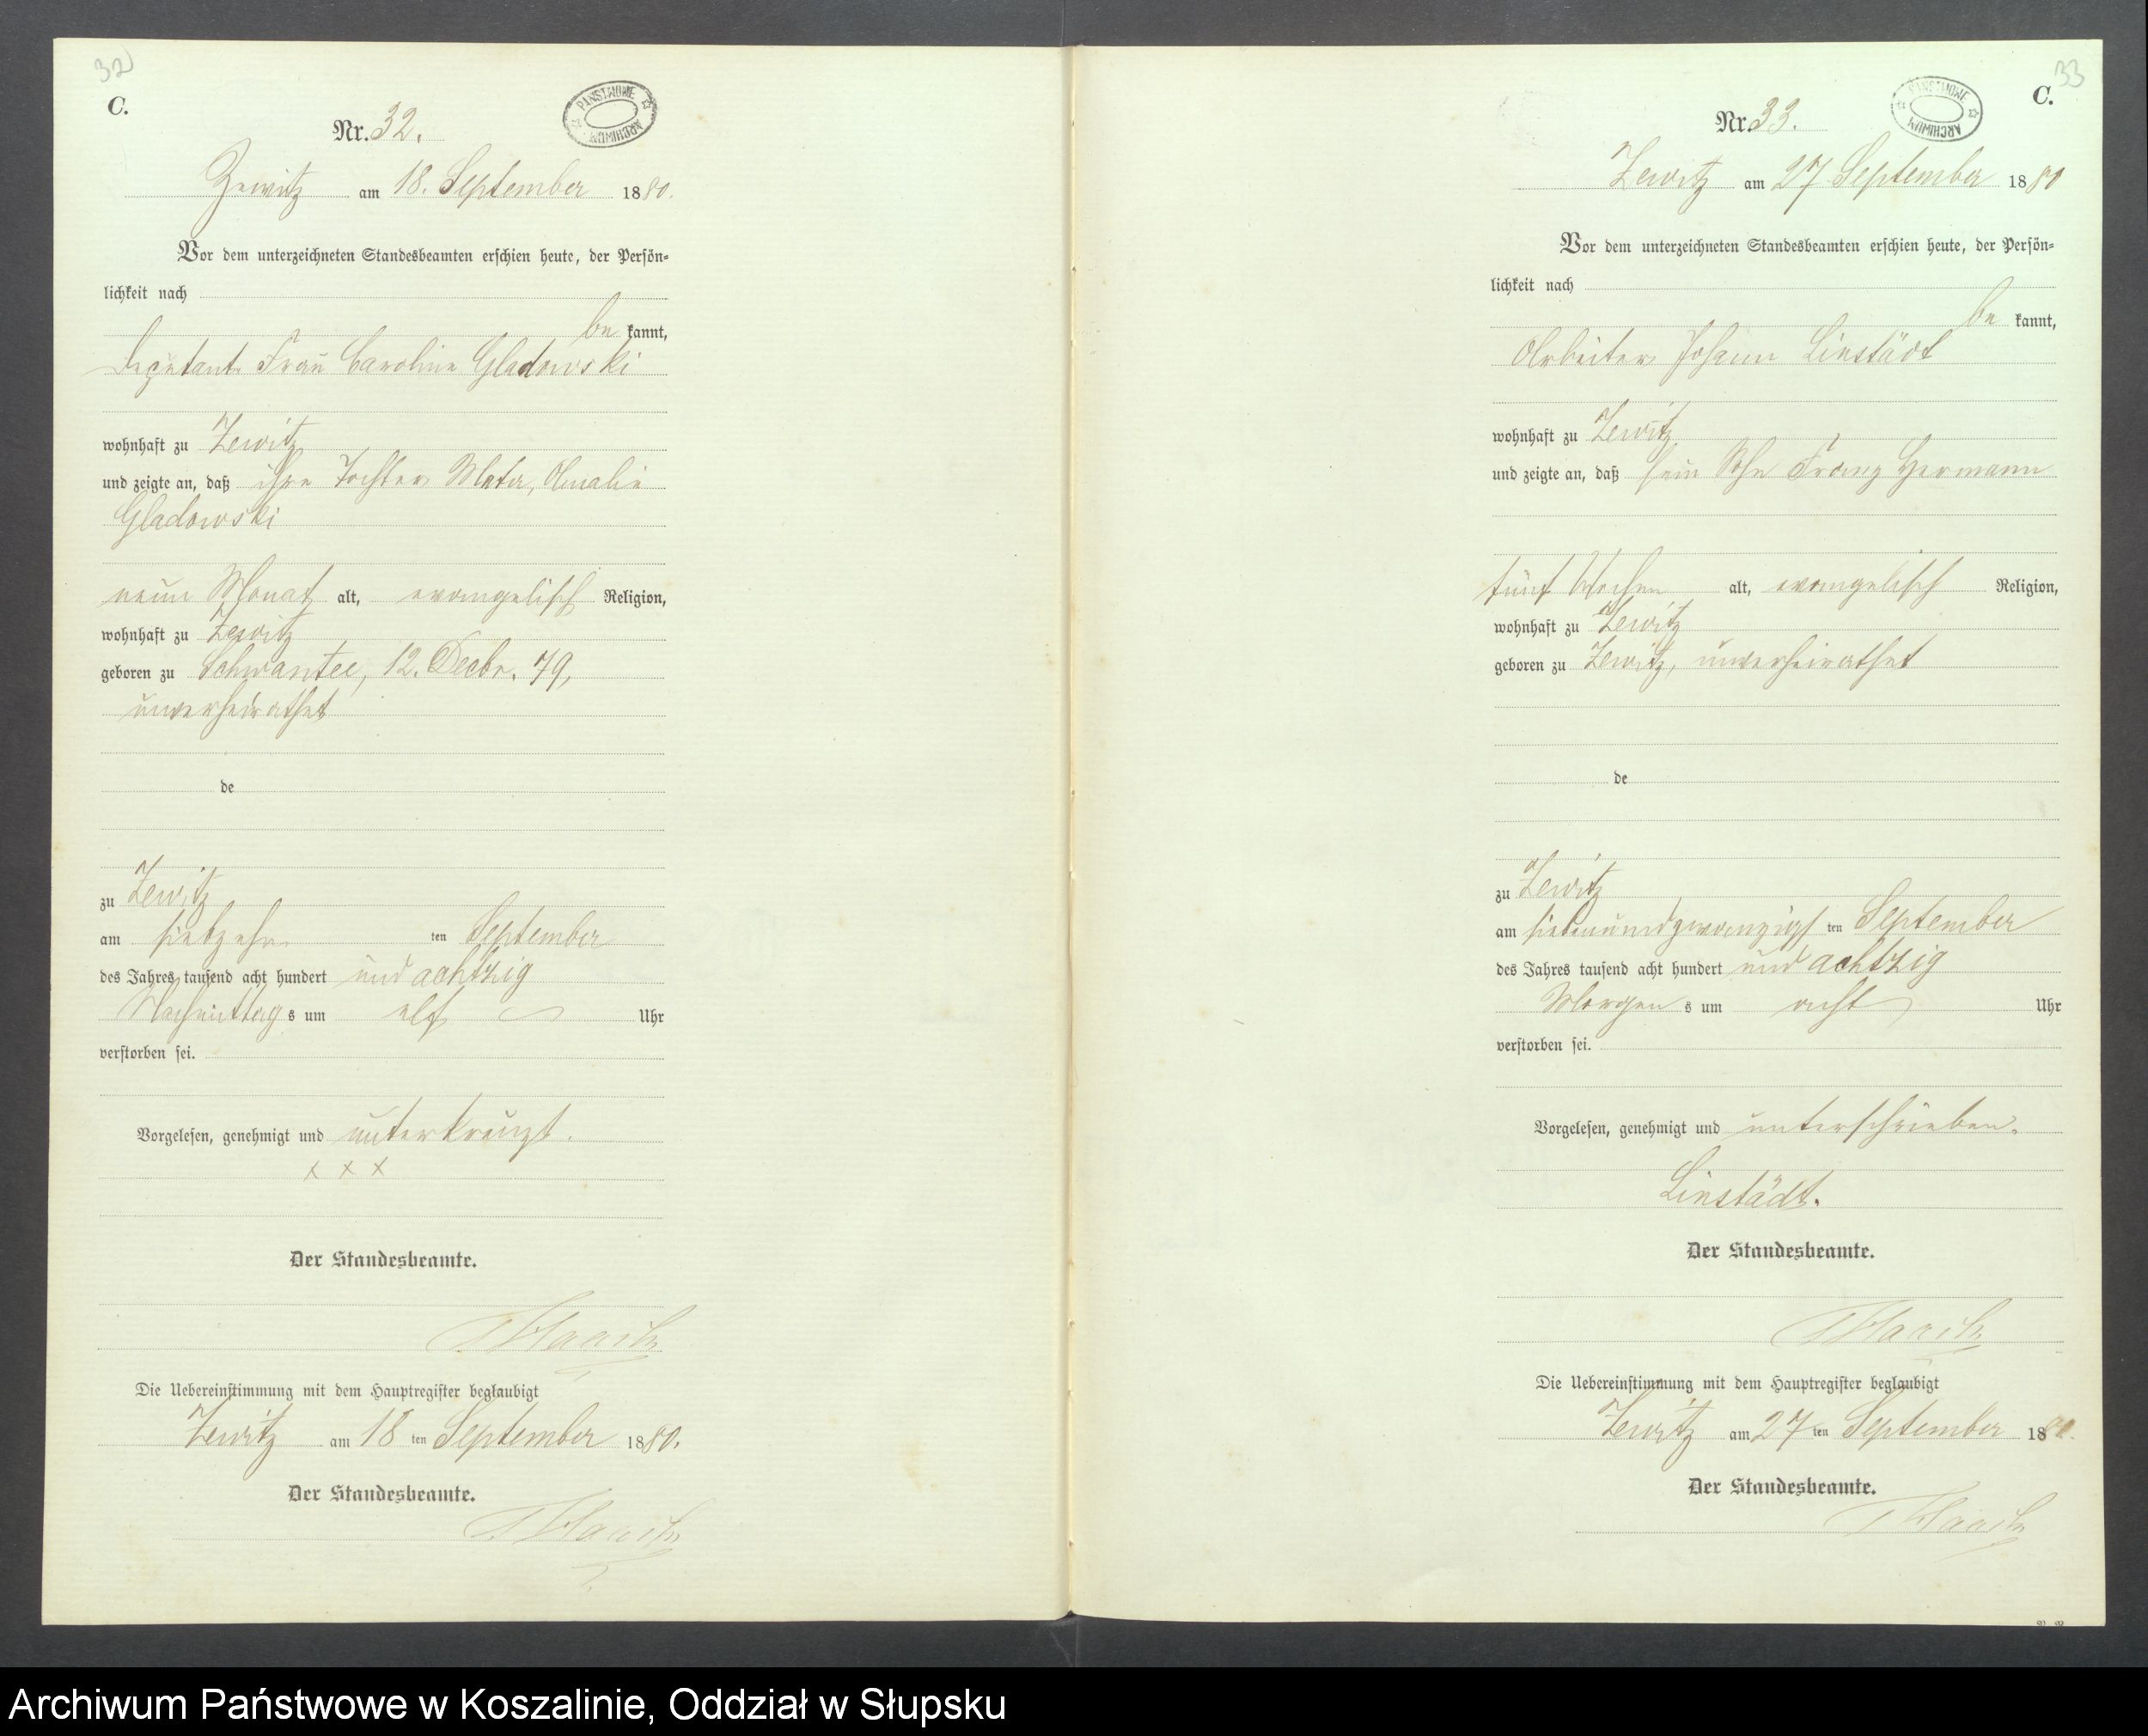 32
C.
PANSTWOWE ARCHIWUM
Nr. 32.
Zewitz am 18. September 1880.
Vor dem unterzeichneten Standesbeamten erschien heute, der Persön-
lichkeit nach
be kannt,
Frau Caroline Gladowski
wohnhaft zu Zewitz
und zeigte an, daß ihre Tochter Meta, Amalie
Gladowski
neun Monat alt, evangelisch Religion,
wohnhaft zu Zewitz
geboren zu Schwantee, 12. Decbr. 79,
unverheirathet
de
zu Zewitz
am siebzehn ten September
des Jahres tausend acht hundert und achtzig
Nachmittag s um elf Uhr
verstorben sei.
Vorgelesen, genehmigt und unterkreuzt.
x x x
Der Standesbeamte.
Die Uebereinstimmung mit dem Hauptregister beglaubigt
Zewitz am 18 ten September 1880.
Der Standesbeamte.
33
C.
PANSTWOWE ARCHIWUM
Nr. 33.
Zewitz am 27 September 1880
Vor dem unterzeichneten Standesbeamten erschien heute, der Persön-
lichkeit nach
be kannt,
Arbeiter Johann Linstädt
wohnhaft zu Zewitz
und zeigte an, daß sein Sohn Franz Hermann
fünf Wochen alt, evangelisch Religion,
wohnhaft zu Zewitz
geboren zu Zewitz, unverheirathet
de
zu Zewitz
am siebenundzwanzigst ten September
des Jahres tausend acht hundert und achtzig
Morgen s um acht Uhr
verstorben sei.
Vorgelesen, genehmigt und unterschrieben.
Linstädt.
Der Standesbeamte.
Die Uebereinstimmung mit dem Hauptregister beglaubigt
Zewitz am 27 ten September 1880.
Der Standesbeamte.
Archiwum Państwowe w Koszalinie, Oddział w Słupsku